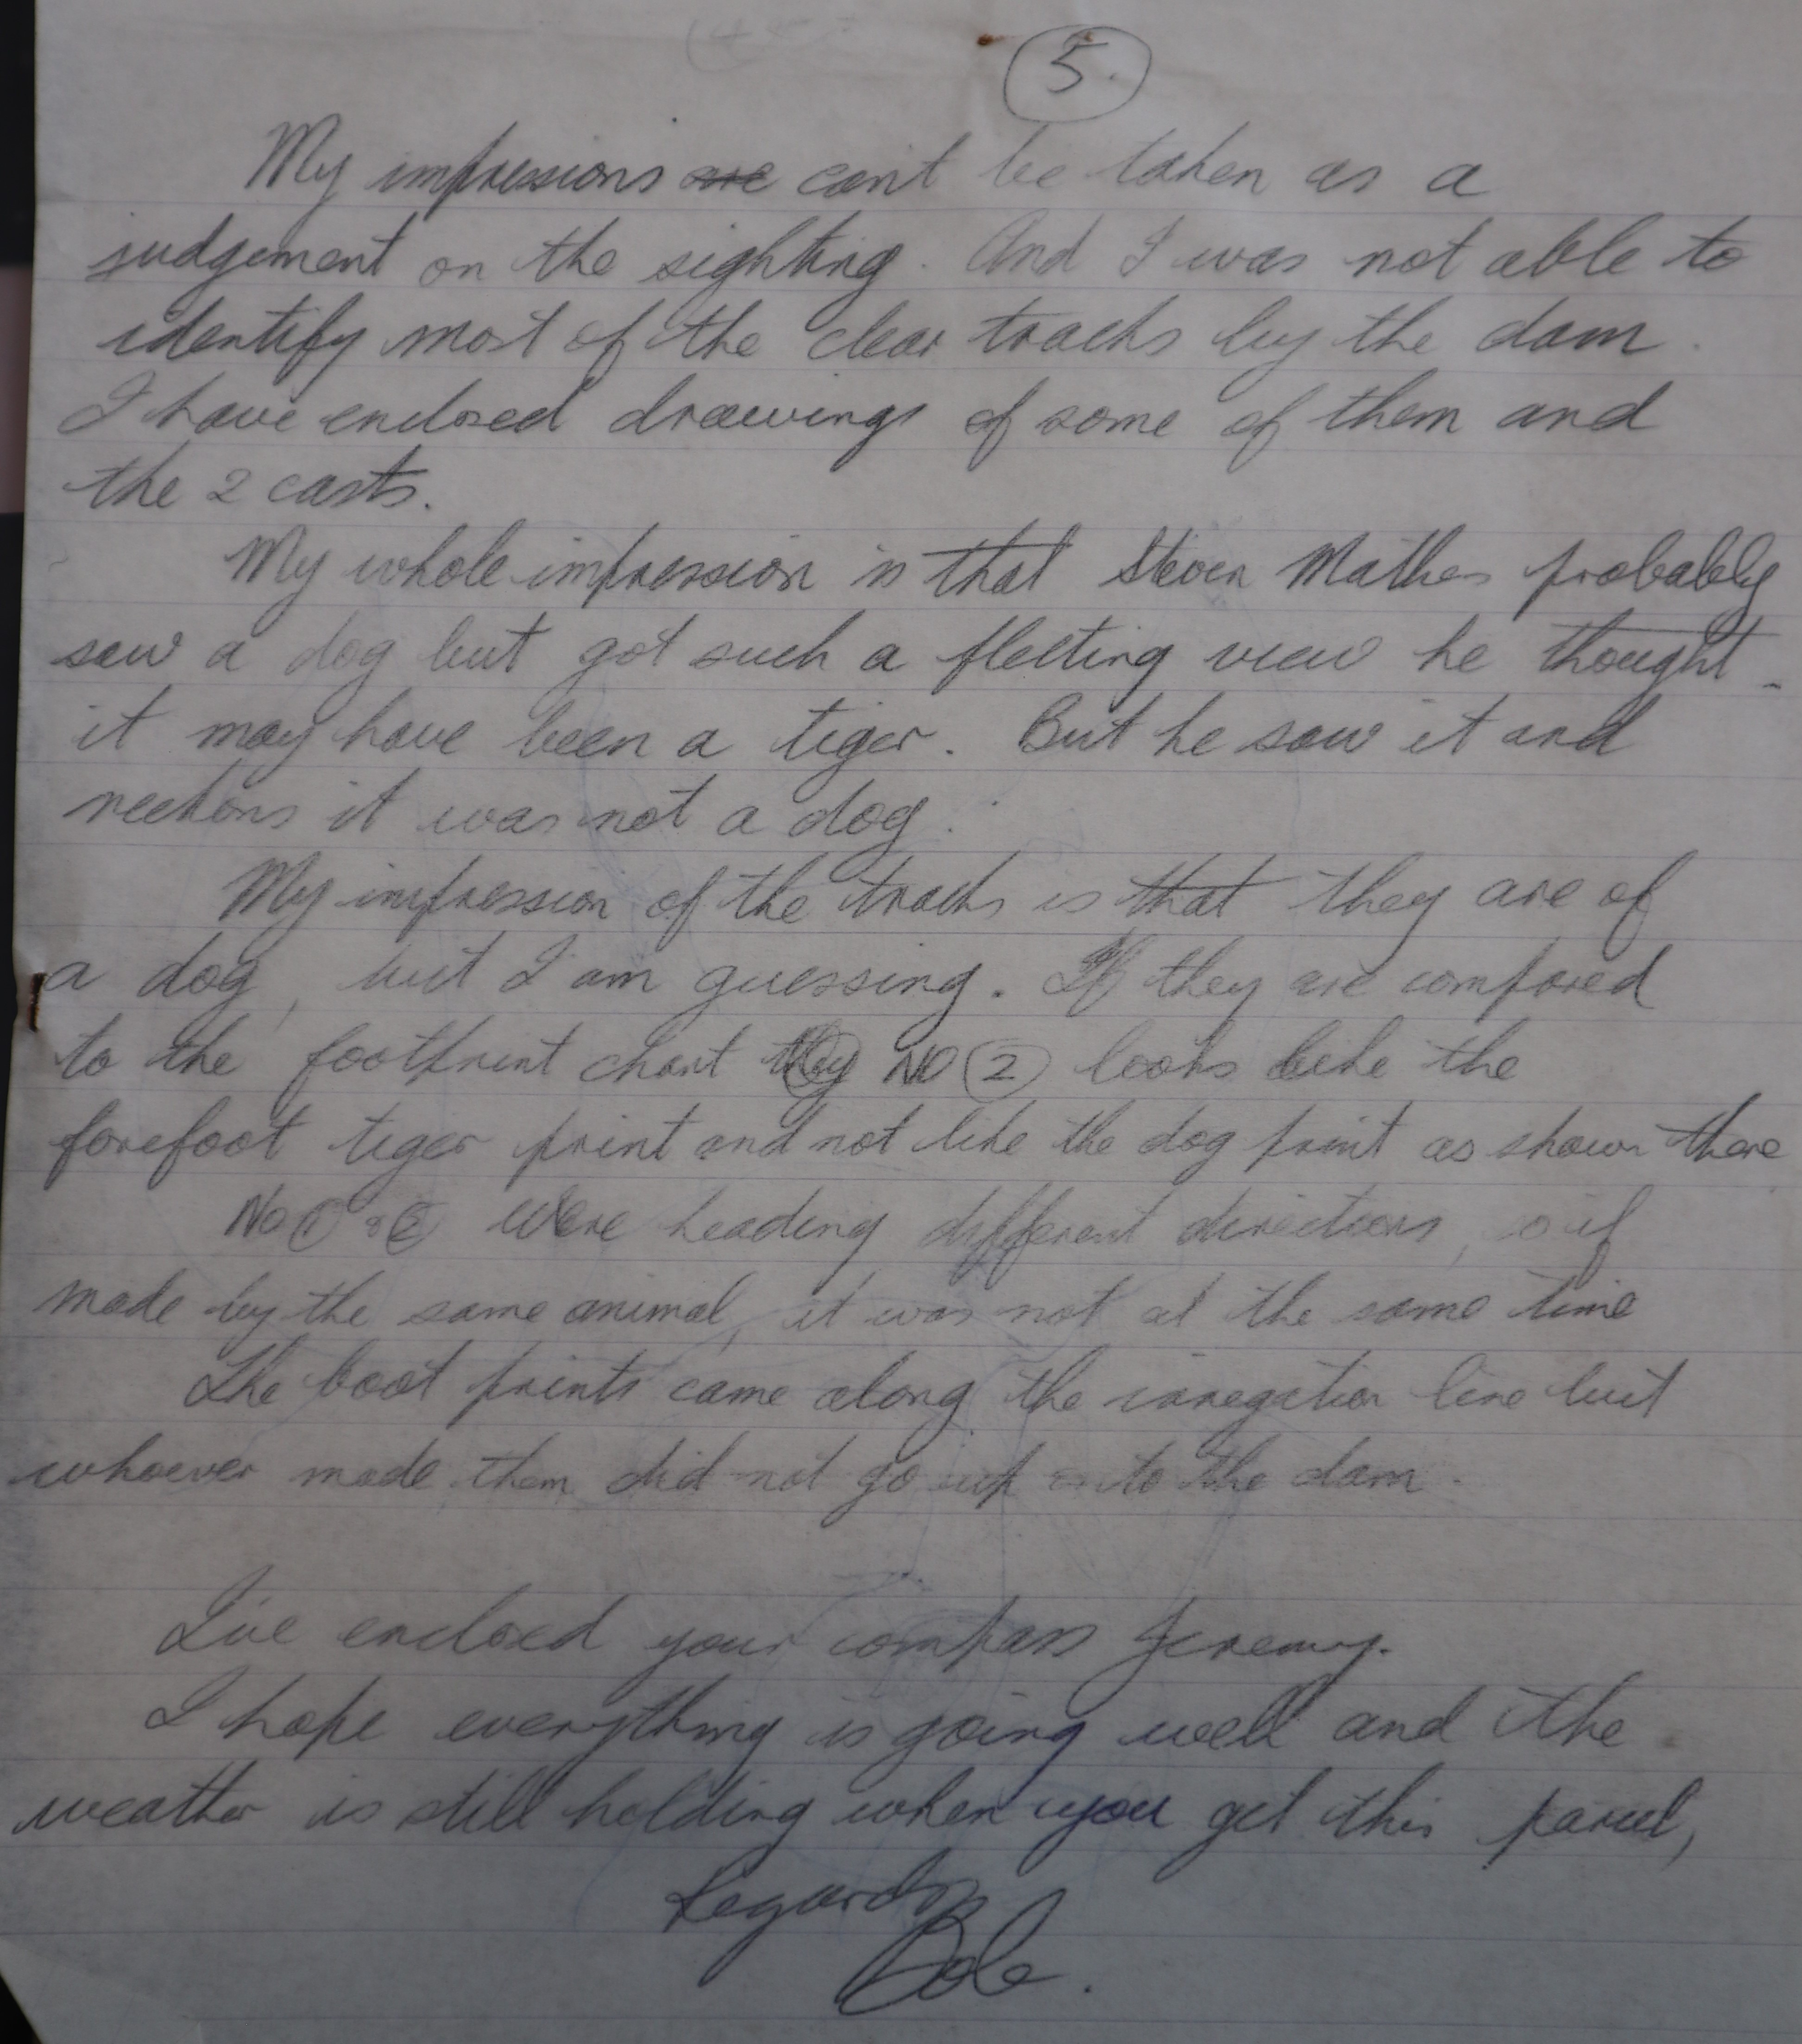 5.
My impressions are can't be taken as a
judgement on the sighting. And I was not able to
identify most of the clear tracks by the dam.
I have enclosed drawings of some of them and
the 2 casts.
My whole impression is that Steven Mathes probably
saw a dog but got such a fleeting view he thought
it may have been a tiger. But he saw it and
reckons it was not a dog.
My impression of the tracks is that they are of
a dog, but I am guessing. If they are compared
to the footprint chart they No 2 looks like the
forefoot tiger print and not like the dog print as shown there
No 1 & 2 were heading different directions, so if
made by the same animal, it was not at the same time
The boot prints came along the irregation line but
whoever made them did not go up onto the dam.
I've enclosed your compass Jeremy.
I hope everything is going well and the
weather is still holding when you get this parcel,
Regards
Bob.